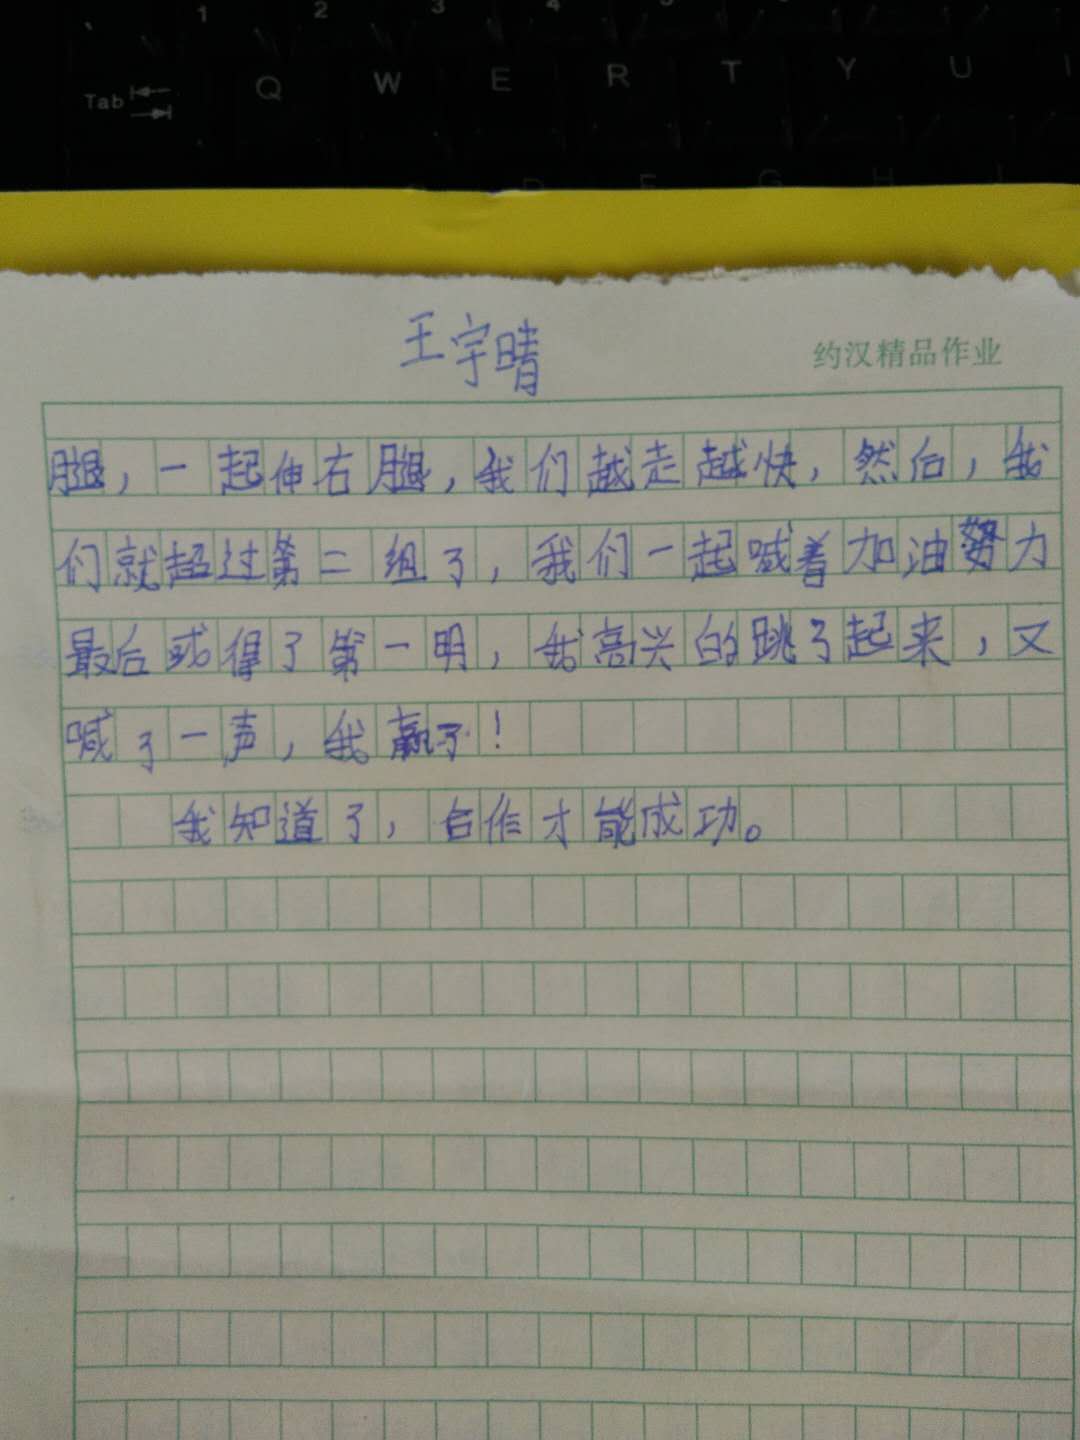 1 2 3 4 5
Tab Q W E R T Y U I
D F G H J
王宇晴
约汉精品作业
腿，一起伸右腿，我们越走越快，然后，我
们就超过第二组了，我们一起喊着加油努力
最后或得了第一明，我高兴的跳了起来，又
喊了一声，我赢了！
我知道了，合作才能成功。